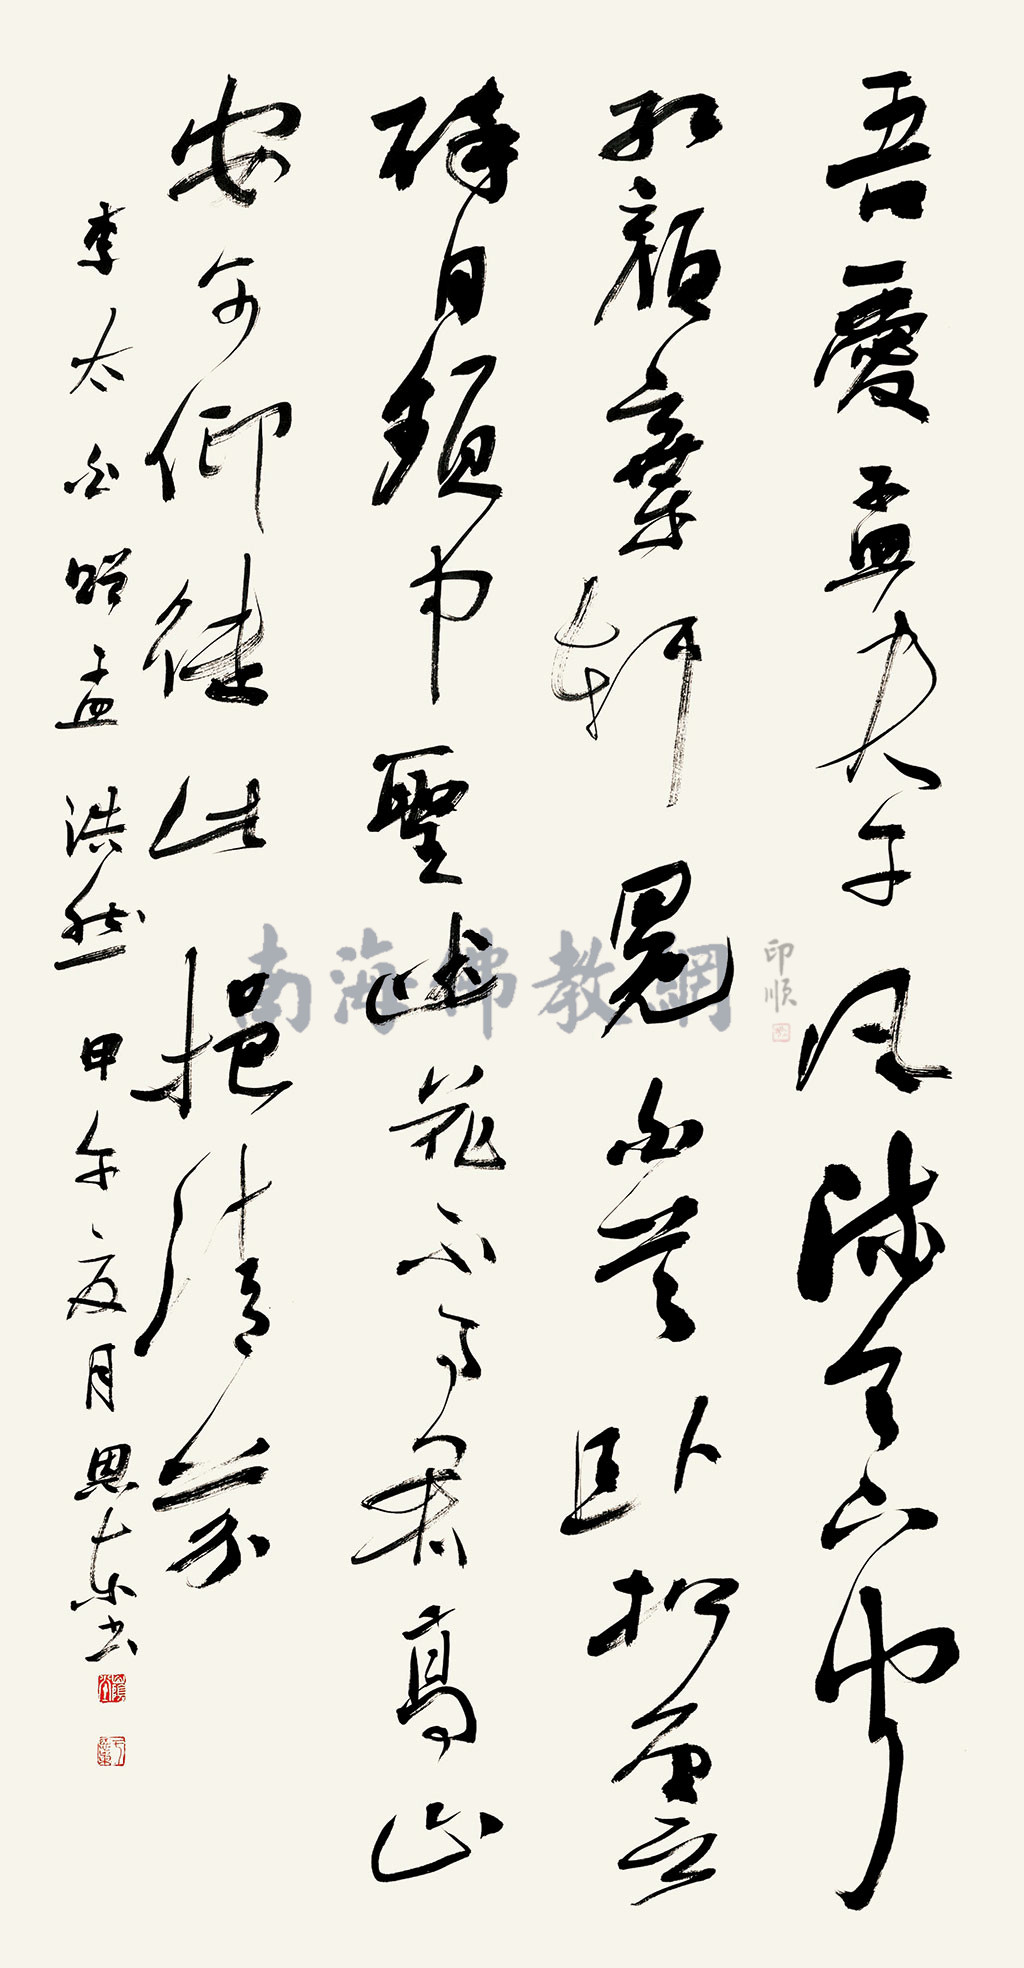 吾愛孟夫子風流天下聞
紅顏棄軒冕白首臥松雲
醉月頻中聖迷花不事君高山
安可仰徒此挹清芬
李太白贈孟浩然甲午夏月思東書
南海佛教網
印順